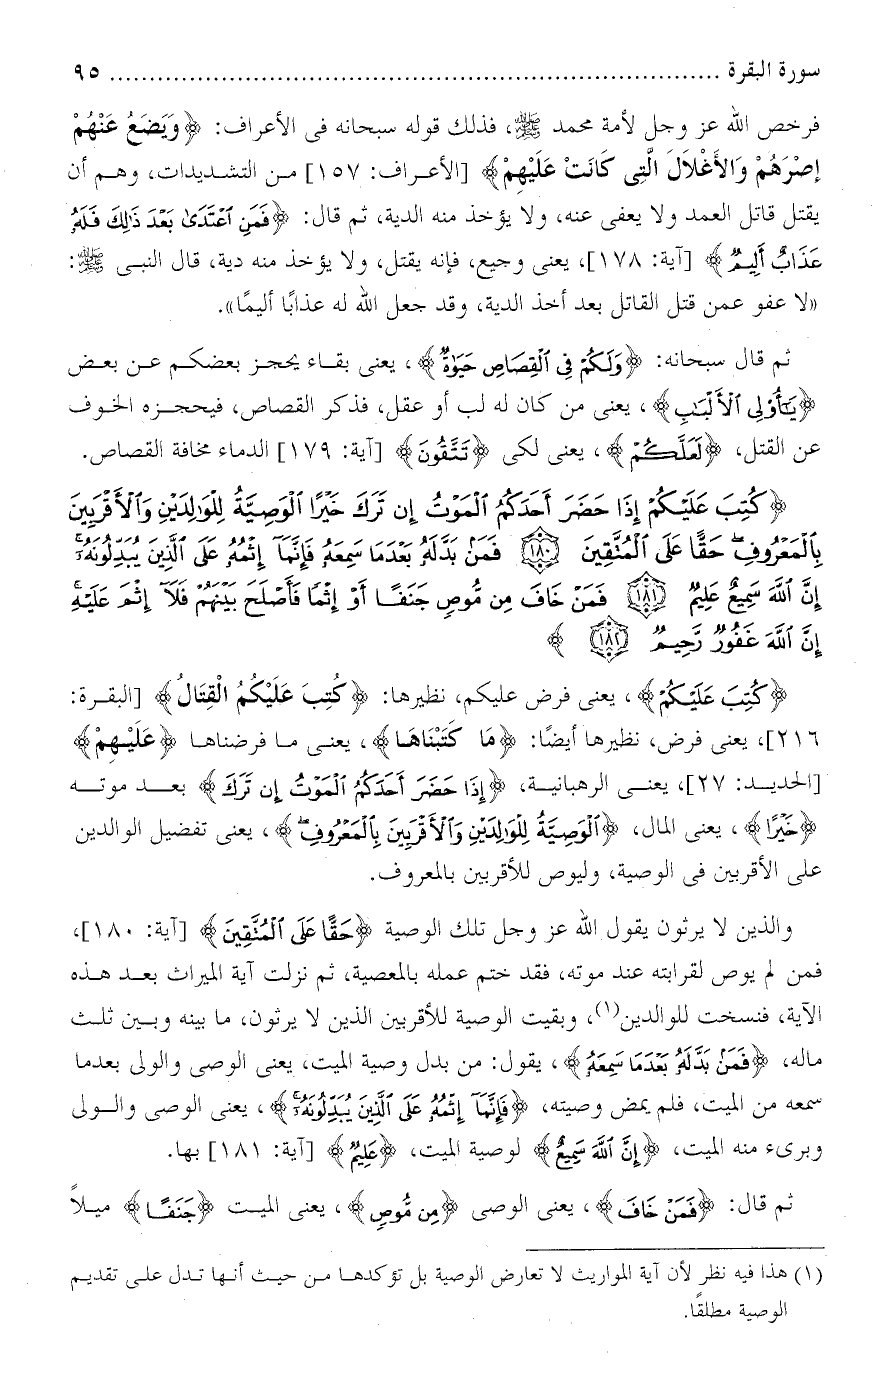 سورة البقرة ........................................................................... ٩٥
فرخص الله عز وجل لأمة محمد ﷺ، فذلك قوله سبحانه فى الأعراف: ﴿وَيَضَعُ عَنْهُمْ
إِصْرَهُمْ وَالأَغْلاَلَ الَّتِى كَانَتْ عَلَيْهِمْ﴾ [الأعراف: ١٥٧] من التشديدات، وهم أن
يقتل قاتل العمد ولا يعفى عنه، ولا يؤخذ منه الدية، ثم قال: ﴿فَمَنِ ٱعْتَدَىٰ بَعْدَ ذَٰلِكَ فَلَهُۥ
عَذَابٌ أَلِيمٌ﴾ [آية: ١٧٨]، يعنى وجيع، فإنه يقتل، ولا يؤخذ منه دية، قال النبى ﷺ:
«لا عفو عمن قتل القاتل بعد أخذ الدية، وقد جعل الله له عذابًا أليمًا».
ثم قال سبحانه: ﴿وَلَكُمْ فِى ٱلْقِصَاصِ حَيَوٰةٌ﴾، يعنى بقاء يحجز بعضكم عن بعض
﴿يَـٰٓأُو۟لِى ٱلْأَلْبَـٰبِ﴾، يعنى من كان له لب أو عقل، فذكر القصاص، فيحجزه الخوف
عن القتل، ﴿لَعَلَّكُمْ﴾، يعنى لكى ﴿تَتَّقُونَ﴾ [آية: ١٧٩] الدماء مخافة القصاص.
﴿كُتِبَ عَلَيْكُمْ إِذَا حَضَرَ أَحَدَكُمُ ٱلْمَوْتُ إِن تَرَكَ خَيْرًا ٱلْوَصِيَّةُ لِلْوَٰلِدَيْنِ وَٱلْأَقْرَبِينَ
بِٱلْمَعْرُوفِ ۖ حَقًّا عَلَى ٱلْمُتَّقِينَ ١٨٠ فَمَنۢ بَدَّلَهُۥ بَعْدَمَا سَمِعَهُۥ فَإِنَّمَآ إِثْمُهُۥ عَلَى ٱلَّذِينَ يُبَدِّلُونَهُۥٓ ۚ
إِنَّ ٱللَّهَ سَمِيعٌ عَلِيمٌ ١٨١ فَمَنْ خَافَ مِن مُّوصٍ جَنَفًا أَوْ إِثْمًا فَأَصْلَحَ بَيْنَهُمْ فَلَآ إِثْمَ عَلَيْهِ ۚ
إِنَّ ٱللَّهَ غَفُورٌ رَّحِيمٌ ١٨٢﴾
﴿كُتِبَ عَلَيْكُمْ﴾، يعنى فرض عليكم، نظيرها: ﴿كُتِبَ عَلَيْكُمُ الْقِتَالُ﴾ [البقرة:
٢١٦]، يعنى فرض، نظيرها أيضًا: ﴿مَا كَتَبْنَاهَا﴾، يعنى ما فرضناها ﴿عَلَيْهِمْ﴾
[الحديد: ٢٧]، يعنى الرهبانية، ﴿إِذَا حَضَرَ أَحَدَكُمُ ٱلْمَوْتُ إِن تَرَكَ﴾ بعد موته
﴿خَيْرًا﴾، يعنى المال، ﴿ٱلْوَصِيَّةُ لِلْوَٰلِدَيْنِ وَٱلْأَقْرَبِينَ بِٱلْمَعْرُوفِ ۖ﴾، يعنى تفضيل الوالدين
على الأقربين فى الوصية، وليوص للأقربين بالمعروف.
والذين لا يرثون يقول الله عز وجل تلك الوصية ﴿حَقًّا عَلَى ٱلْمُتَّقِينَ﴾ [آية: ١٨٠]،
فمن لم يوص لقرابته عند موته، فقد ختم عمله بالمعصية، ثم نزلت آية الميراث بعد هذه
الآية، فنسخت للوالدين(١)، وبقيت الوصية للأقربين الذين لا يرثون، ما بينه وبين ثلث
ماله، ﴿فَمَنۢ بَدَّلَهُۥ بَعْدَمَا سَمِعَهُۥ﴾، يقول: من بدل وصية الميت، يعنى الوصى والولى بعدما
سمعه من الميت، فلم يمض وصيته، ﴿فَإِنَّمَآ إِثْمُهُۥ عَلَى ٱلَّذِينَ يُبَدِّلُونَهُۥٓ ۚ﴾، يعنى الوصى والولى
وبرىء منه الميت، ﴿إِنَّ ٱللَّهَ سَمِيعٌ﴾ لوصية الميت، ﴿عَلِيمٌ﴾ [آية: ١٨١] بها.
ثم قال: ﴿فَمَنْ خَافَ﴾، يعنى الوصى ﴿مِن مُّوصٍ﴾، يعنى الميت ﴿جَنَفًا﴾ ميلاً
(١) هذا فيه نظر لأن آية المواريث لا تعارض الوصية بل تؤكدها من حيث أنها تدل على تقديم
الوصية مطلقًا.